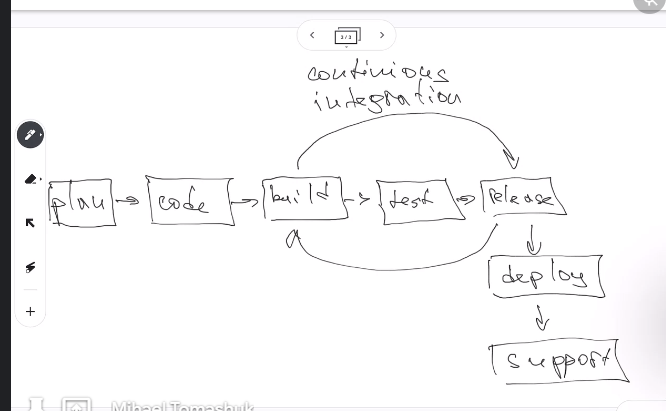 3 / 3
continious
integration
plan
code
build
test
release
deploy
support
Mihael Tomashuk